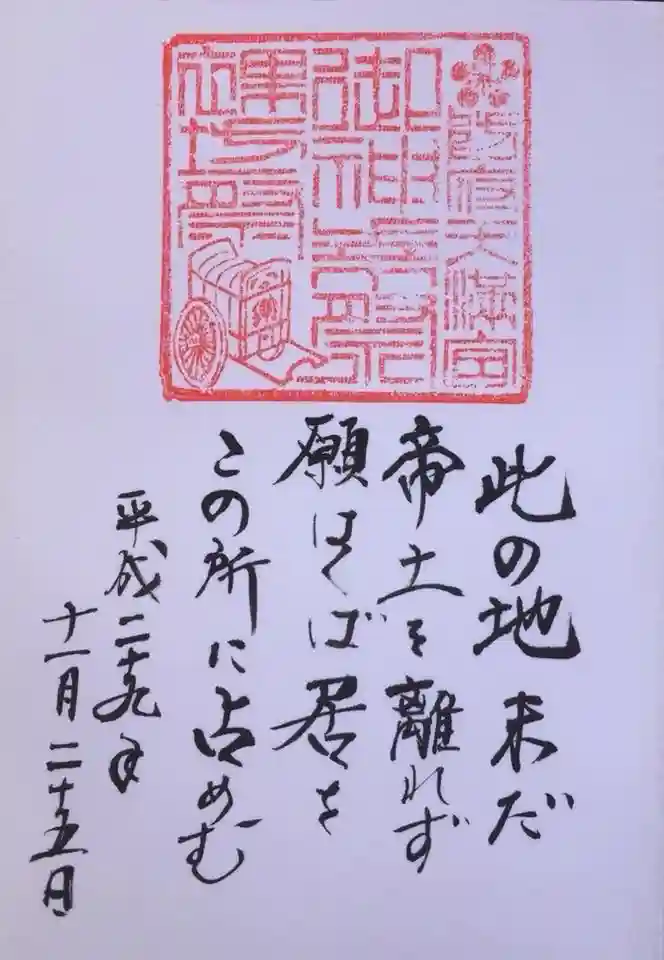 防府天満宮
御神幸祭
此の地未だ
帝土を離れず
願はくば居を
この所に占めむ
平成二十九年
十一月二十五日